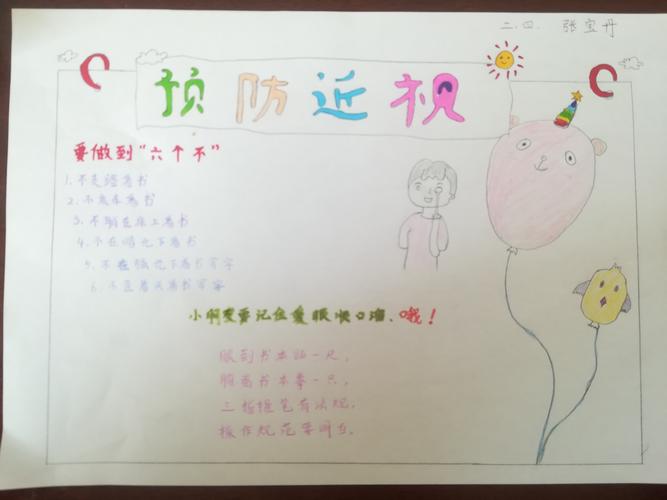 二.四. 张宝丹
预防近视
要做到"六个不"
1.不走路看书
2.不乘车看书
3.不躺在床上看书
4.不在暗光下看书
5.不在强光下看书写字
6.不歪着头看书写字
小朋友要记住爱眼顺口溜、哦！
眼到书本距一尺，
胸离书本拳一只，
三指握笔有法规，
操作规范要明白。